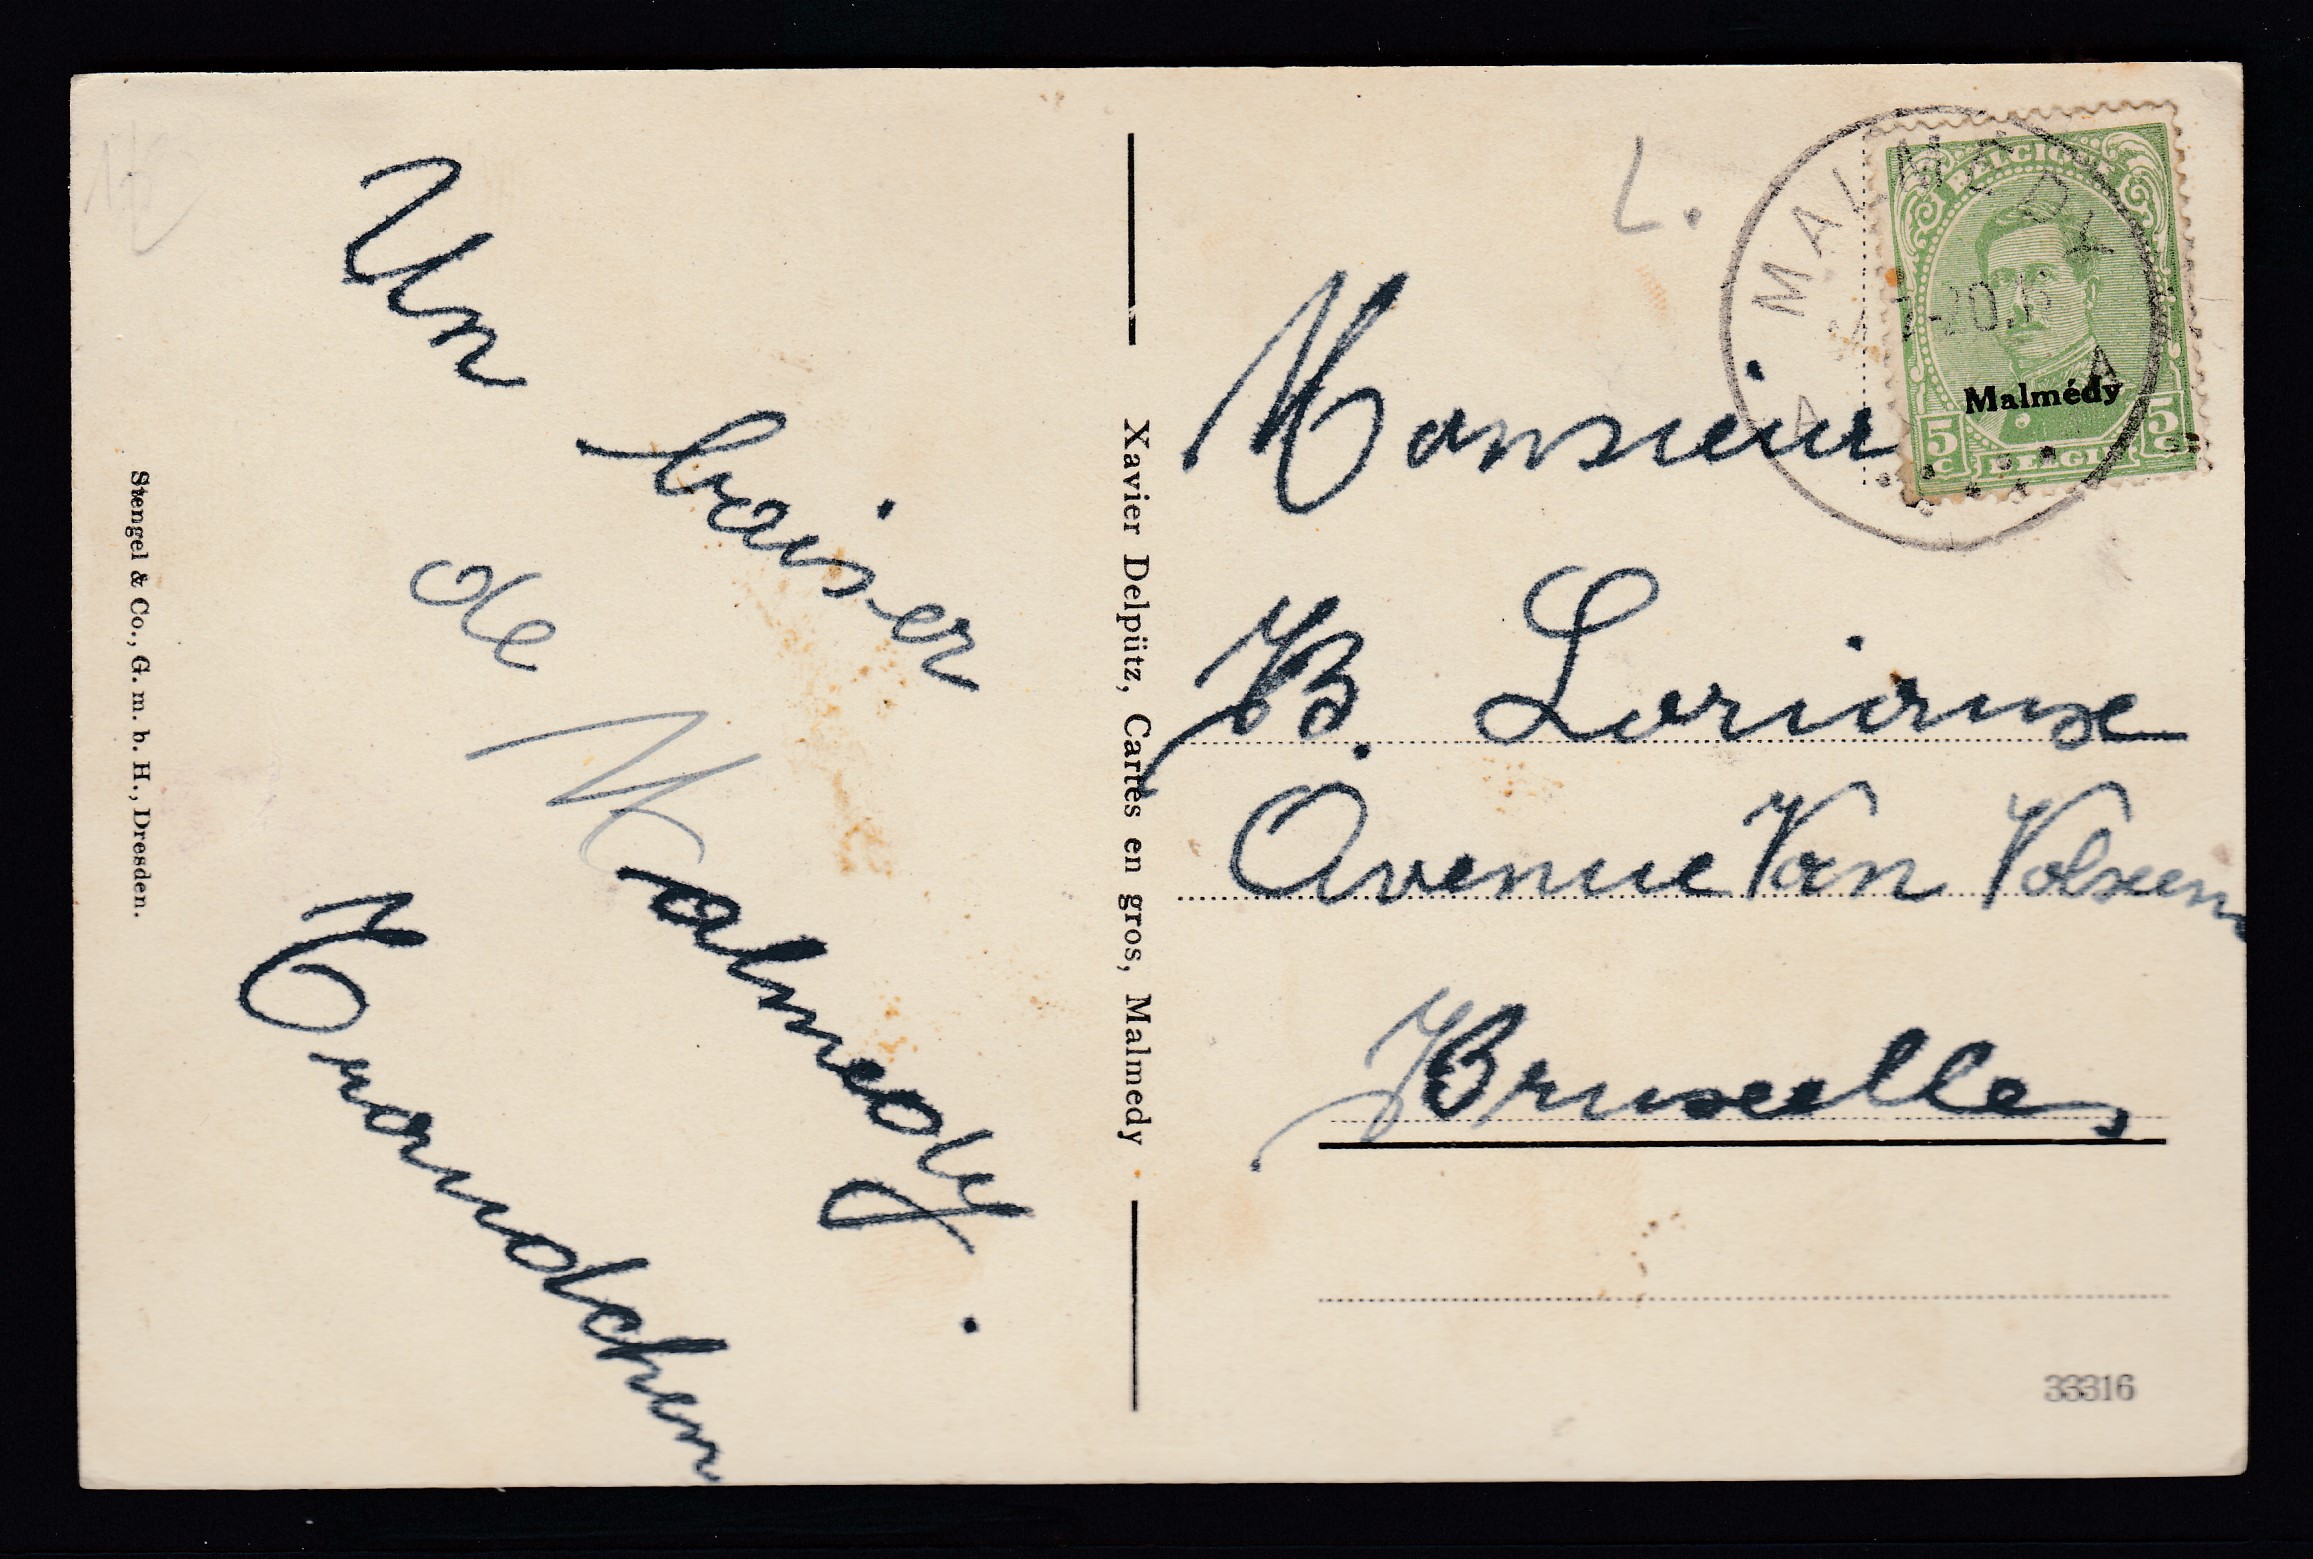 Un
baiser
de
Malmedy.
Stengel & Co., G. m. b. H., Dresden.
Xavier Delpütz, Cartes en gros, Malmedy
L.
MALMEDY
BELGIQUE
Malmédy
5 c
5
BELGIË
Monsieur
B. Loriaux
Avenue Van Volxem
Bruxelles
33316